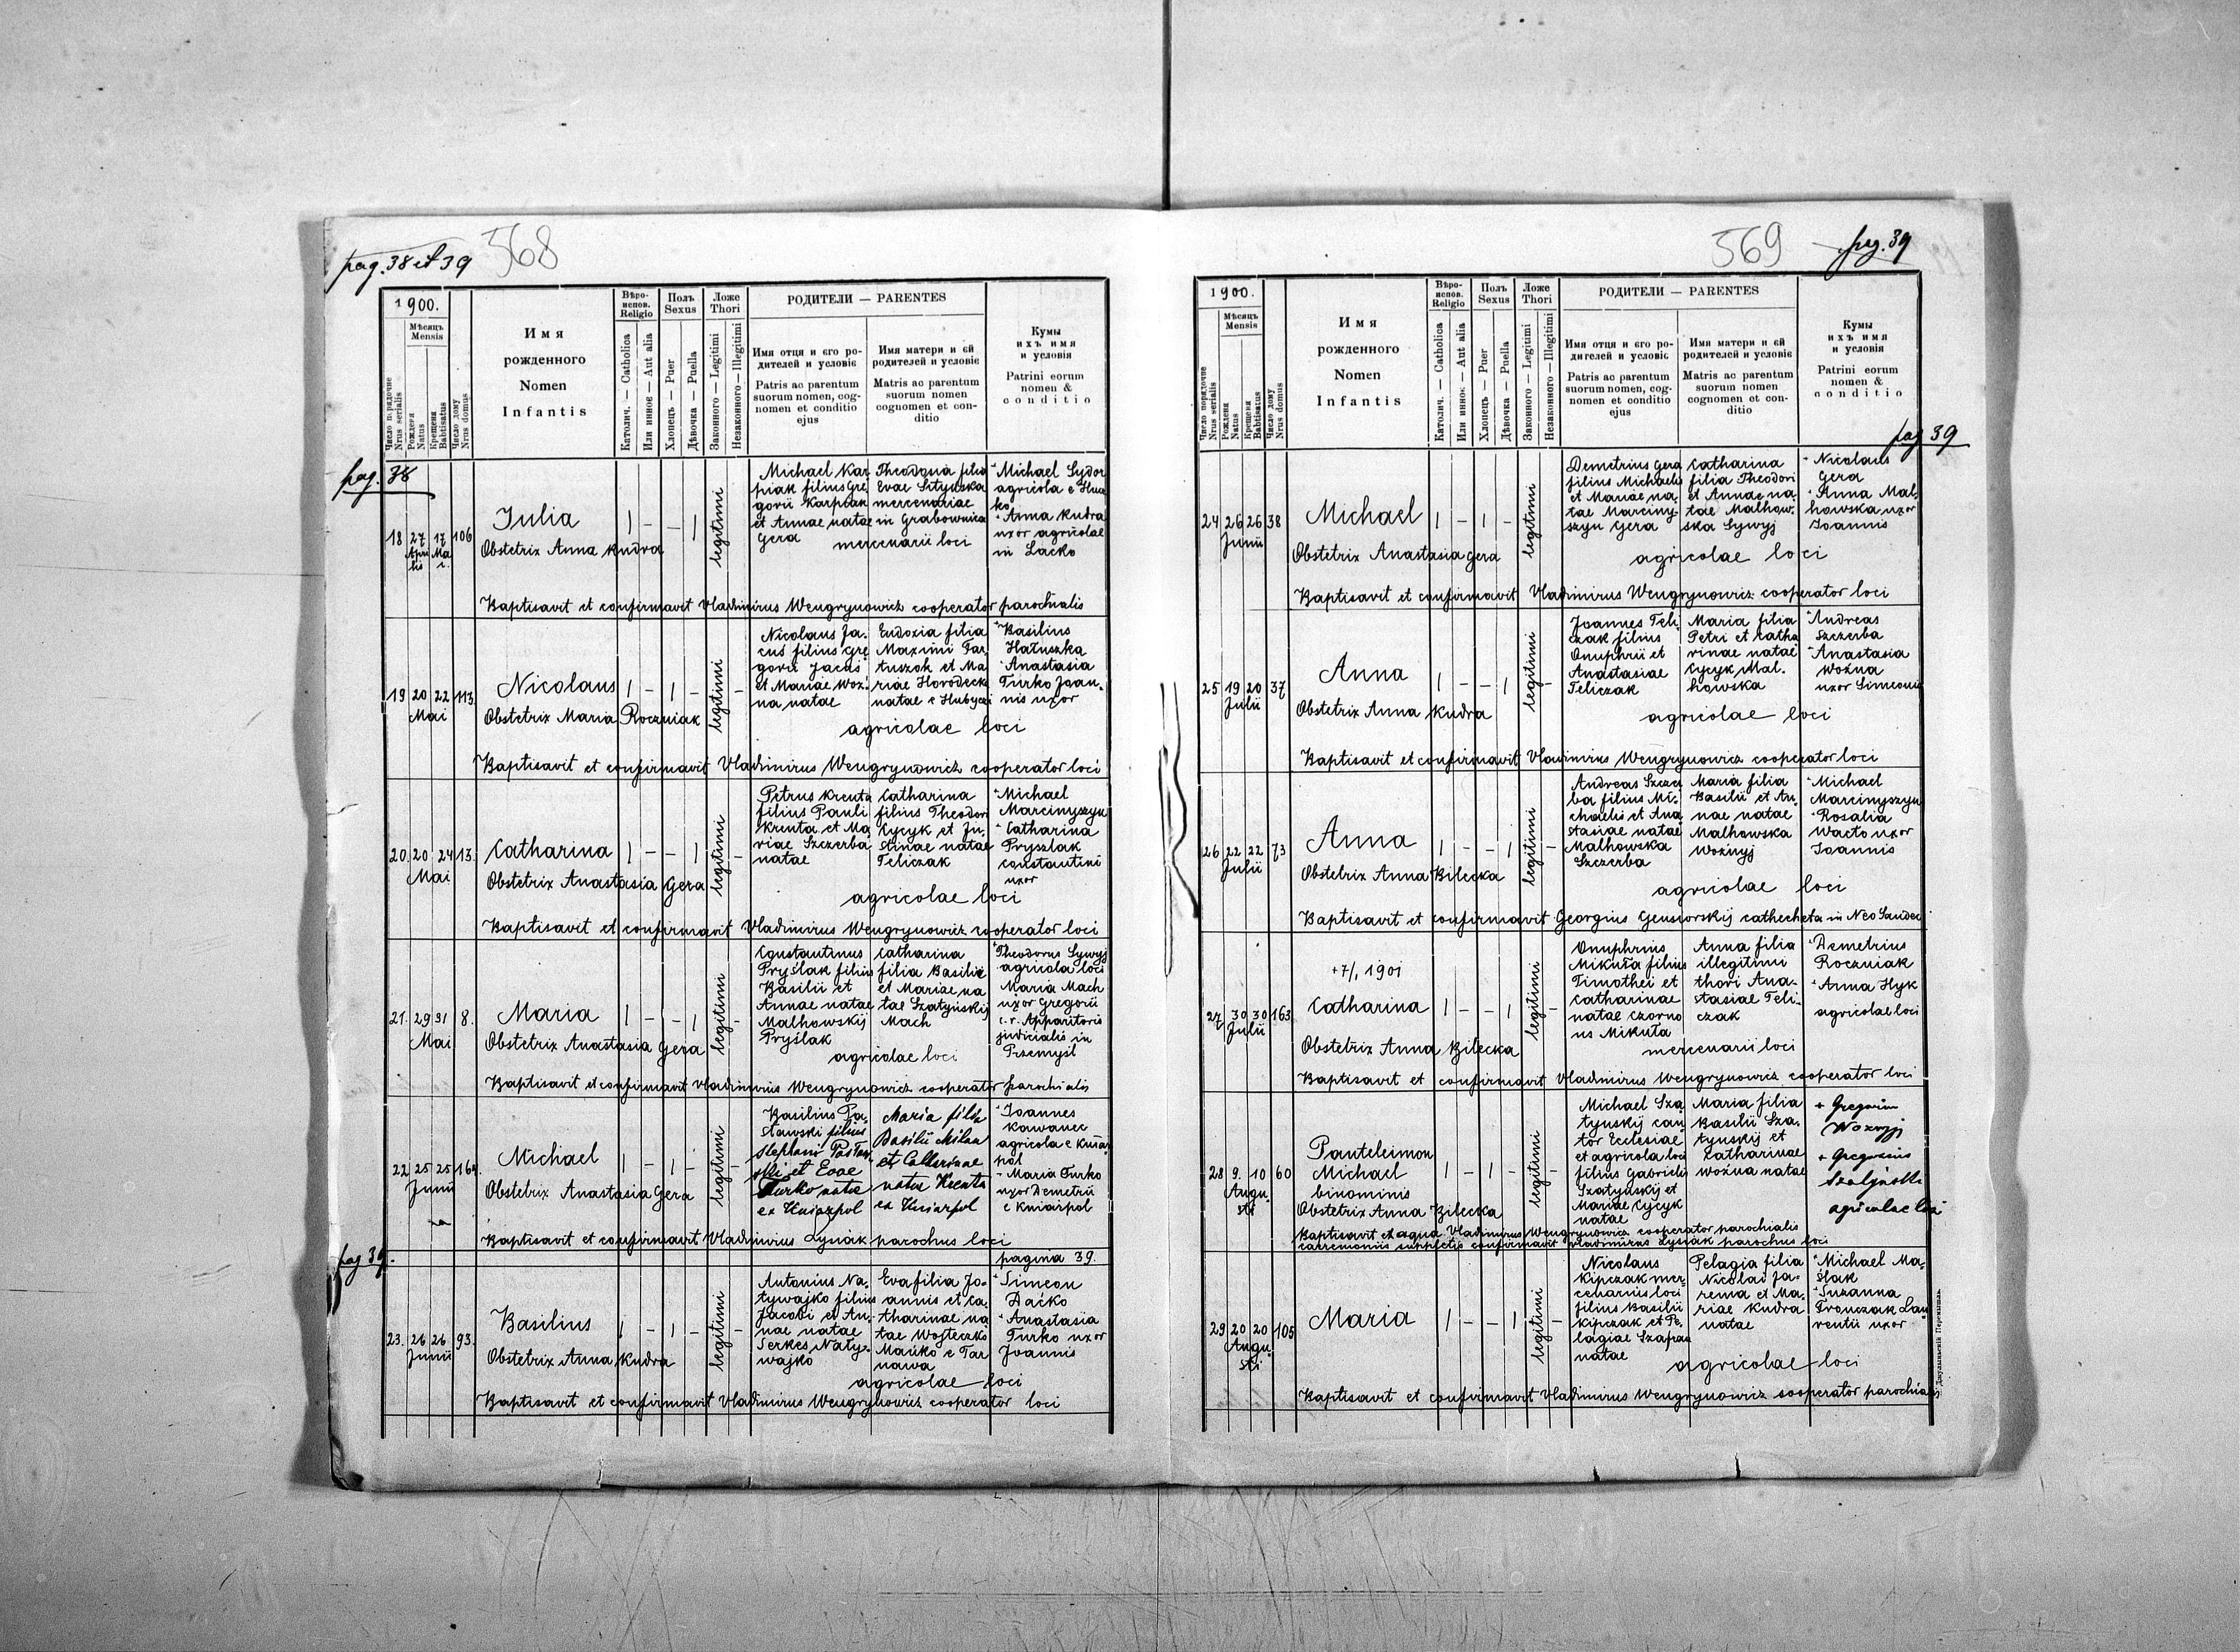 pag. 38 et 39 568
1900.
Мѣсяцъ
Mensis
Число порядочне
Nrus serialis
Рождея
Natus
Крещеня
Babtisatus
Число дому
Nrus domus
Имя
рожденного
Nomen
Infantis
Вѣро-
испов.
Religio
Католич. — Catholica
Или инноє — Aut alia
Полъ
Sexus
Хлопецъ — Puer
Дѣвочка — Puella
Ложе
Thori
Законного — Legitimi
Незаконного — Illegitimi
РОДИТЕЛИ — PARENTES
Имя отця и єго ро-
дителей и условіє
Patris ac parentum
suorum nomen, cog-
nomen et conditio
ejus
Имя матери и єй
родителей и условіє
Matris ac parentum
suorum nomen
cognomen et con-
ditio
Кумы
ихъ имя
и условія
Patrini eorum
nomen &
conditio
pag. 38
18 27 17 106
Aprilis Mai
Julia
Obstetrix Anna Kudra
legitimi
Michael Kar-
piak filius Gre
gorii Karpiak
et Annae natae
Gera
Theodosia filia
Evae Sityńska
mercenariae
in Grabownica
mercenarii loci
Michael Sydor
agricola e Hua
ko
Anna Kudra
uxor agricolae
in Lacko
Baptisavit et confirmavit Vladimirus Wengrynowicz cooperator parochialis
19 20 22 113.
Mai
Nicolaus
Obstetrix Maria Roczniak
legitimi
Nicolaus Ja-
cus filius Gre
gorii Jacus
et Mariae Woź-
na natae
Eudoxia filia
Maximi Tar-
tuszok et Ma
riae Horodecka
natae e Hubycz
agricolae loci
Basilius
Hałuszka
Anastasia
Turko Joan-
nis uxor
Baptisavit et confirmavit Vladimirus Wengrynowicz cooperator loci
20. 20 24 13.
Mai
Catharina
Obstetrix Anastasia Gera
legitimi
Petrus Kruta
filius Pauli
Kruta et Ma
riae Szczerba
natae
Catharina
filius Theodori
Cycyk et Ju-
stinae natae
Teliczak
agricolae loci
Michael
Marcinyszyn
Catharina
Pryszlak
Constantini
uxor
Baptisavit et confirmavit Vladimirus Wengrynowicz cooperator loci
21. 29 31 8.
Mai
Maria
Obstetrix Anastasia Gera
legitimi
Constantinus
Pryślak filius
Basilii et
Annae natae
Malhowskij
Pryślak
Catharina
filia Basilii
et Mariae na
tae Szatyńskij
Mach
agricolae loci
Theodorus Sywyj
agricola loci
Maria Mach
uxor Gregorii
c. r. Apparitoris
judicialis in
Przemyśl
Baptisavit et confirmavit Vladimirus Wengrynowicz cooperator parochialis
22 25 25 164.
Junii
Michael
Obstetrix Anastasia Gera
legitimi
Basilius Pa-
sławski filius
Stephani
et Evae
Turko natae
ex Kniazpol
Maria filia
Basilii Milan
et Catharinae
natae Kruta
ex Kniazpol
Joannes
Kawanec
agricola e Kniaź
pol
Maria Turko
uxor Demetrii
e Kniaźpol
Baptisavit et confirmavit Vladimirus Lysiak parochus loci
pag 39. pagina 39.
23. 26 26 93.
Junii
Basilius
Obstetrix Anna Kudra
legitimi
Antonius Na-
tywajko filius
Jacobi et An-
nae natae
Serkes Naty-
wajko
Eva filia Jo-
annis et Ca-
tharinae na
tae Wojteczko
Mańko e Tar
nawa
agricolae loci
Simeon
Daćko
Anastasia
Turko uxor
Joannis
Baptisavit et confirmavit Vladimirus Wengrynowicz cooperator loci
569 pag. 39
1900.
Мѣсяцъ
Mensis
Число порядочне
Nrus serialis
Рождея
Natus
Крещеня
Babtisatus
Число дому
Nrus domus
Имя
рожденного
Nomen
Infantis
Вѣро-
испов.
Religio
Католич. — Catholica
Или инноє — Aut alia
Полъ
Sexus
Хлопецъ — Puer
Дѣвочка — Puella
Ложе
Thori
Законного — Legitimi
Незаконного — Illegitimi
РОДИТЕЛИ — PARENTES
Имя отця и єго ро-
дителей и условіє
Patris ac parentum
suorum nomen, cog-
nomen et conditio
ejus
Имя матери и єй
родителей и условіє
Matris ac parentum
suorum nomen
cognomen et con-
ditio
Кумы
ихъ имя
и условія
Patrini eorum
nomen &
conditio
pag 39
24 26 26 38
Junii
Michael
Obstetrix Anastasia Gera
legitimi
Demetrius Gera
filius Michaelis
et Mariae na-
tae Marciny-
szyn Gera
Catharina
filia Theodori
et Annae na-
tae Malhow-
ska Sywyj
agricolae loci
Nicolaus
Gera
Anna Mal-
howska uxor
Joannis
Baptisavit et confirmavit Vladimirus Wengrynowicz cooperator loci
25 19 20 37
Julii
Anna
Obstetrix Anna Kudra
legitimi
Joannes Teli-
czak filius
Onuphrii et
Anastasiae
Teliczak
Maria filia
Petri et Catha
rinae natae
Cycyk Mal-
howska
agricolae loci
Andreas
Szczerba
Anastasia
Woźna
uxor Simeonis
Baptisavit et confirmavit Vladimirus Wengrynowicz cooperator loci
26 22 22 73
Julii
Anna
Obstetrix Anna Bilecka
legitimi
Andreas Szczer
ba filius Mi-
chaelis et Ana
stasiae natae
Malhowska
Szczerba
Maria filia
Basilii et An-
nae natae
Malhowska
Woźnyj
agricolae loci
Michael
Marcinyszyn
Rosalia
Wacto uxor
Joannis
Baptisavit et confirmavit Georgius Gensiorskij cathecheta in Neo Sandec
27 30 30 163
Julii
+7/1 1901
Catharina
Obstetrix Anna Bilecka
legitimi
Onuphrius
Mikuła filius
Timothei et
Catharinae
natae Czorno
us Mikuła
Anna filia
illegitimi
thori Ana-
stasiae Teli-
czak
mercenarii loci
Demetrius
Roczniak
Anna Hyk
agricolae loci
Baptisavit et confirmavit Vladimirus Wengrynowicz cooperator loci
28 9. 10 60
Augusti
Panteleimon
Michael
binominis
Obstetrix Anna Bilecka
legitimi
Michael Sza
tynskij can
tor Ecclesiae
et agricola loci
filius Gabrielis
Szatynskij et
Mariae Cycyk
natae
Maria filia
Basilii Sza-
tynskij et
Catharinae
Woźna natae
+ Gregorius
Woznyj
+ Gregorius
Szatyński
agricolae loci
Baptisavit ex aqua Vladimirus Wengrynowicz cooperator parochialis
caeremoniis suppletis confirmavit Vladimirus Lysiak parochus loci
29 20 20 105
Augusti
Maria
legitimi
Nicolaus
Kipczak mer-
cenarius loci
filius Basilii
Kipczak et Pe-
lagiae Szapar
natae
Pelagia filia
Nicolai Ja-
rema et Ma-
riae Kudra
natae
agricolae loci
Michael Ma-
ślak
Suzanna
Fronczak Lau
rentii uxor
Baptisavit et confirmavit Vladimirus Wengrynowicz cooperator parochialis